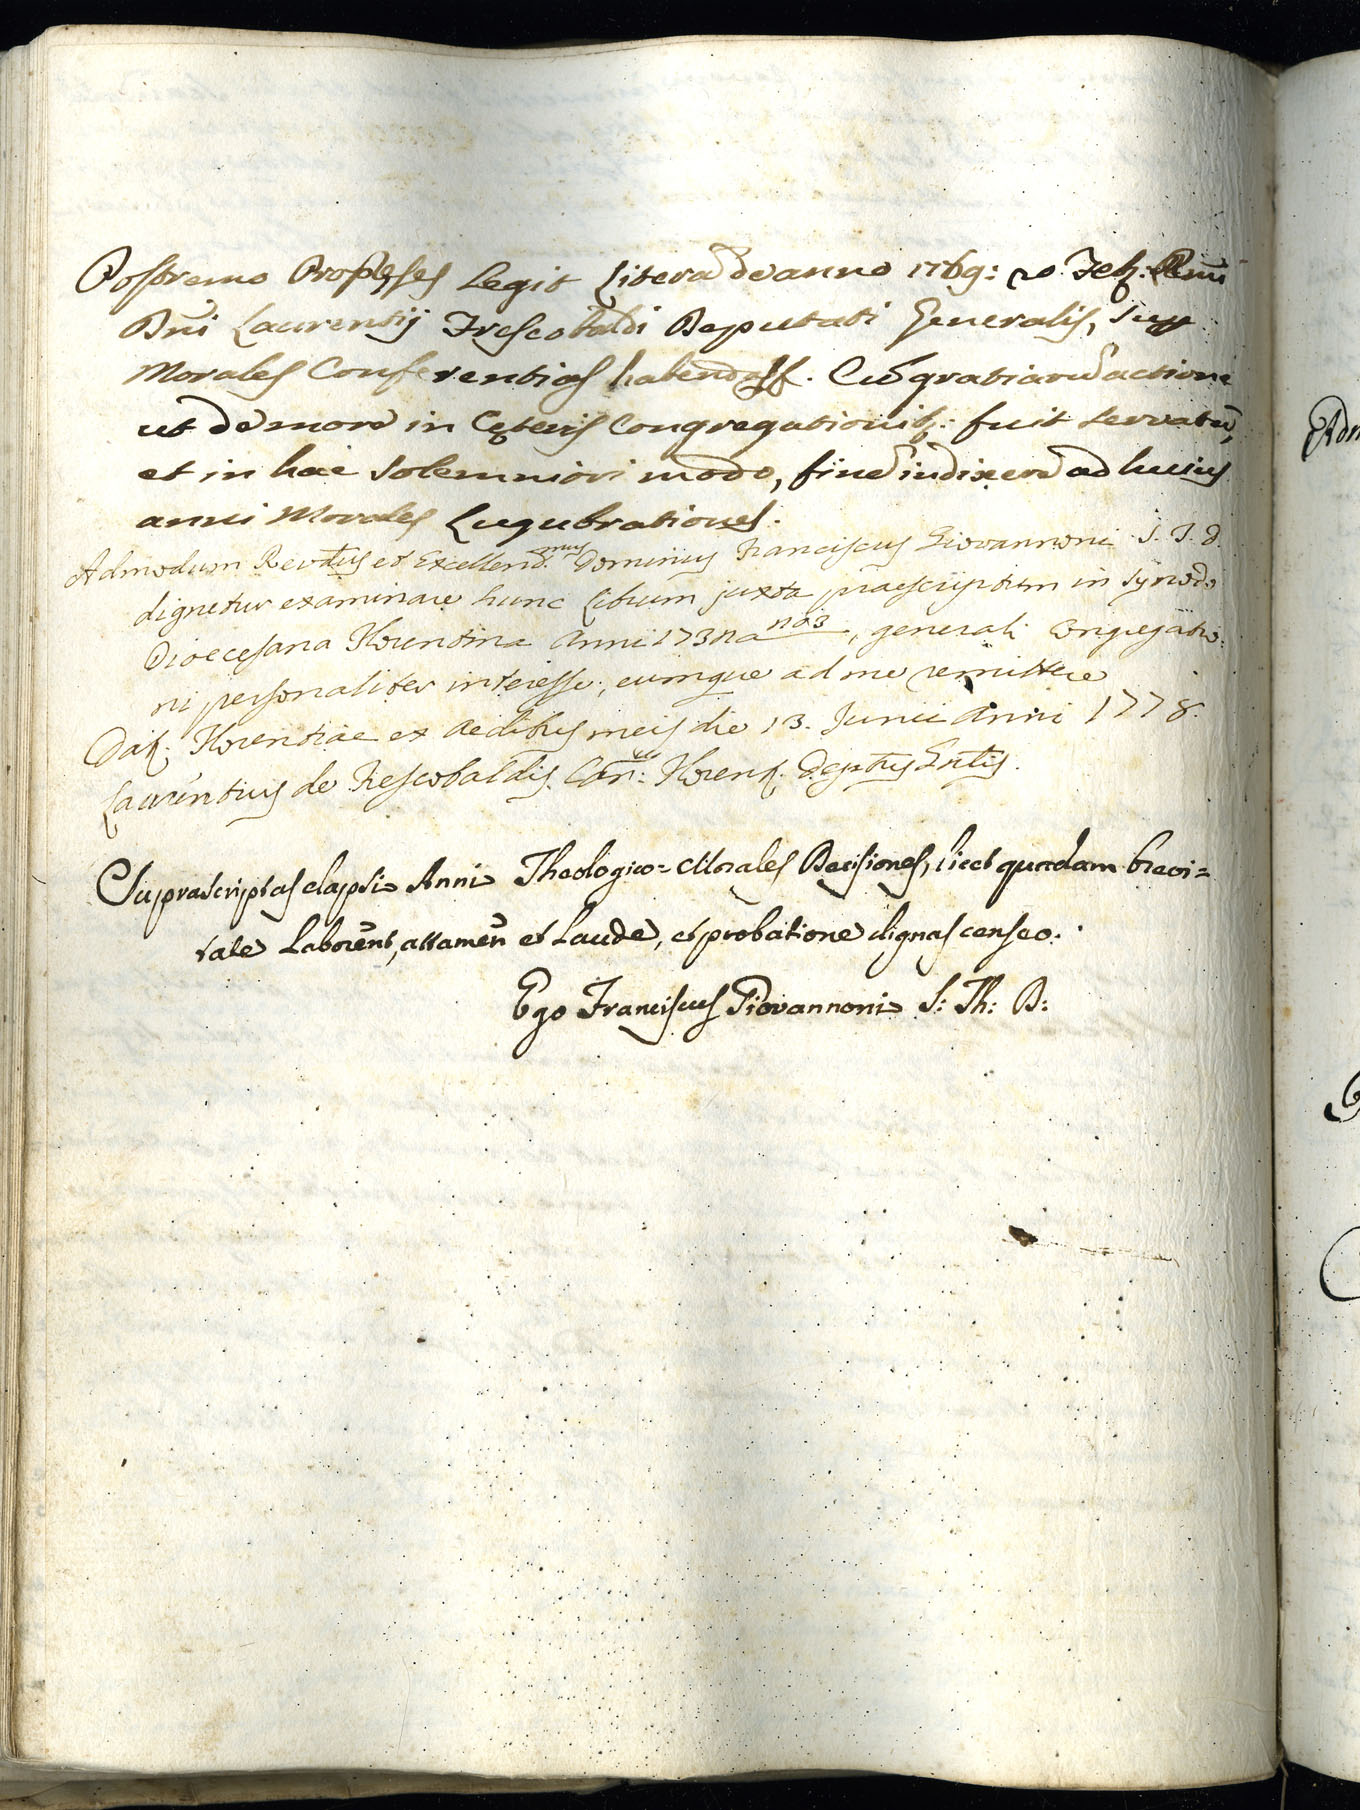 Postremo Propoſes Legit Litera͠ de anno 1769: 20 Feb: Rm̃i
Dñi Laurentij Freſcobaldi Deputati Generaliſ, sup
Moraleſ Conferentiaſ habendaſſ. Cũ gratiarũ actione
ut de more in Cęteriſ Congregationib: fuit servatũ,
et in hac solemniori modo, finẽ indixerõ ad huius
anni Moraleſ Lugubrationeſ.
Admodum Revdus et Excellend.mus Dominus Franciscus Giovannoni S. T. D.
dignetur examinare hunc librum juxta praescriptum in Synodo
Dioecesana Florentina Anni 1732 no 3, generali Congregatio:
ni personaliter interesse, eumque ad me remittere
Dat. Florentiae ex Aedibus meis die 13. Junii Anni 1778.
Laurentius de Frescobaldis Can: Florent. Deptus Gnlis.
Supraſcriptaſ elapsi Anni Theologico=Moraleſ Deciſioneſ, licet quadam brevi=
tate Laborẽnt, attamẽn et Laude, et probatione dignaſ cenſeo.
Ego Franciſcuſ Giovannoni S: Th: D:
Adm